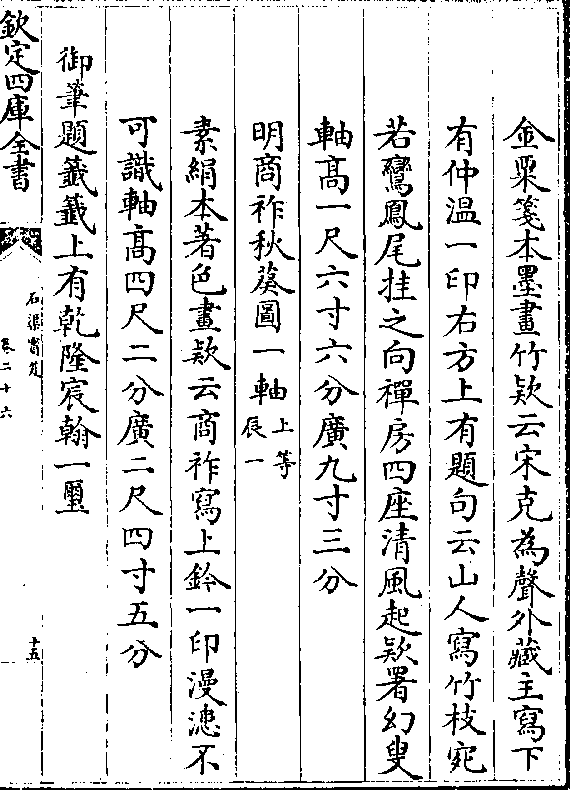 金粟箋本墨畫竹欵云宋克為聲外藏主寫下
有仲溫一印右方上有題句云山人寫竹枝宛
若鸞鳳尾挂之向禪房四座清風起欵署幻叟
軸髙一尺六寸六分廣九寸三分
明商祚秋葵圖一軸上等辰一
素絹本著色畫欵云商祚寫上鈐一印漫漶不
可識軸髙四尺二分廣二尺四寸五分
御筆題籤籤上有乾隆宸翰一璽
欽定四庫全書
石渠寳笈
卷二十六
十五